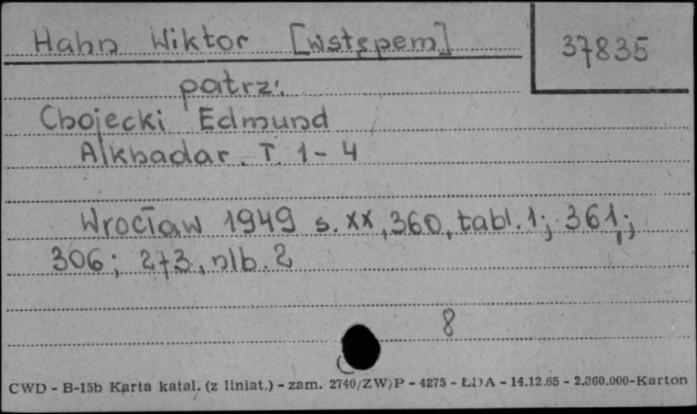 Hahn Wiktor [wstępem]
37835
patrz:
Chojecki Edmund
Alkhadar. T. 1-4
Wrocław 1949 s. XX, 360, tabl. 1; 361;
306; 273, nlb. 2
8
CWD - B-15b Karta katal. (z liniat.) - zam. 2740/ZW/P - 4275 - ŁDA - 14.12.65 - 2.360.000-Karton